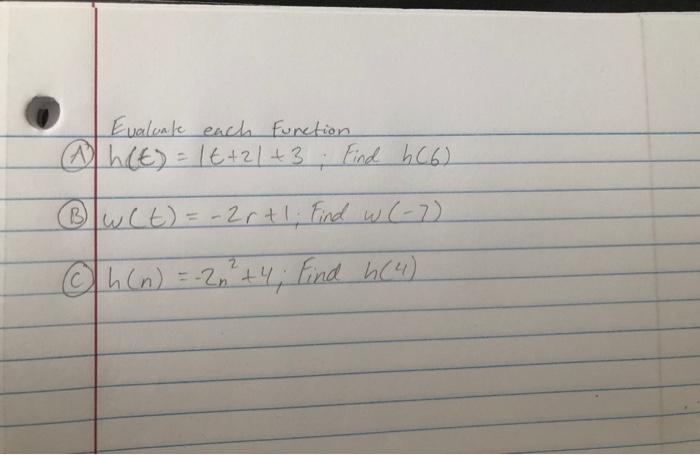 Evaluate each Function
Ⓐ h(t) = |t+2| + 3 ; Find h(6)
Ⓑ w(t) = -2r+1; Find w(-7)
Ⓒ h(n) = -2n²+4; Find h(4)